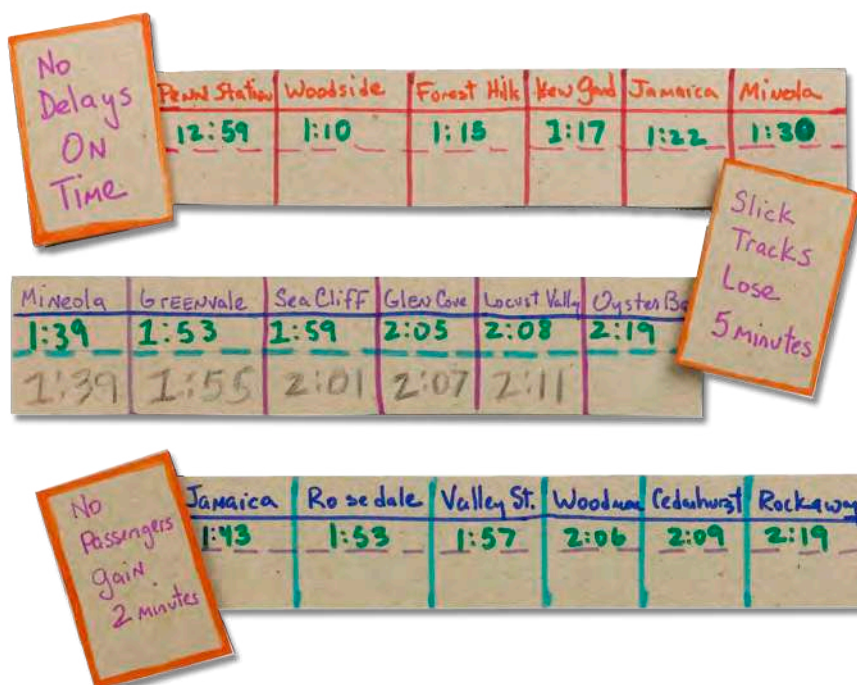 No
Delays
ON
Time
Penn Station Woodside Forest Hills Kew Gard Jamaica Mineola
12:59 1:10 1:15 1:17 1:22 1:30
Slick
Tracks
Lose
5 minutes
Mineola Greenvale Sea Cliff Glen Cove Locust Vally Oyster Ba
1:39 1:53 1:59 2:05 2:08 2:19
1:39 1:55 2:01 2:07 2:11
No
Passengers
gain
2 minutes
Jamaica Rosedale Valley St. Woodmere Cedarhurst Rockaway
1:43 1:53 1:57 2:06 2:09 2:19